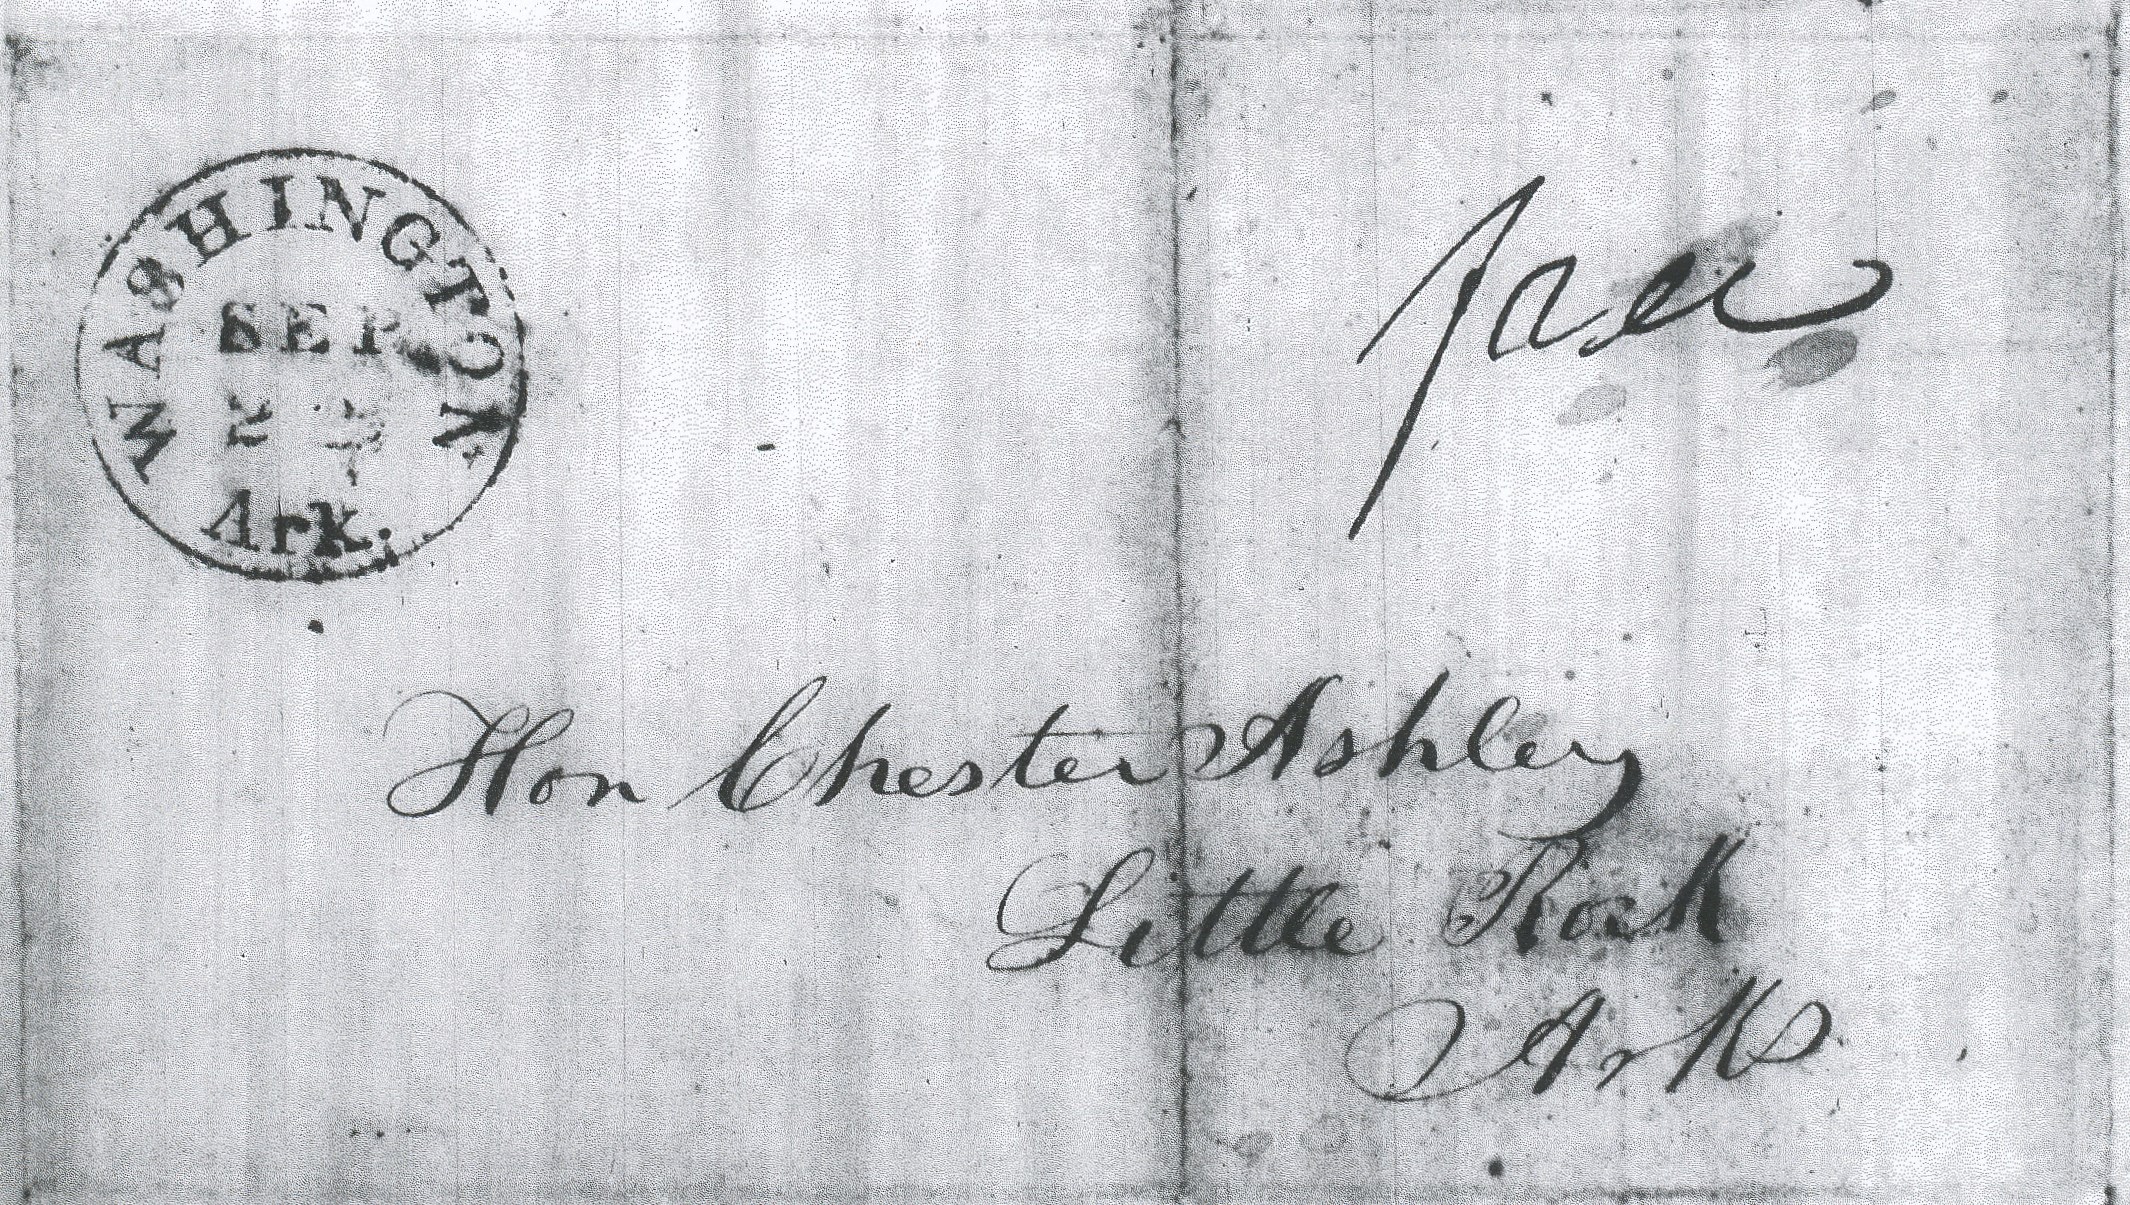 WASHINGTON
SEP
Ark.
free
Hon Chester Ashley
Little Rock
Ark